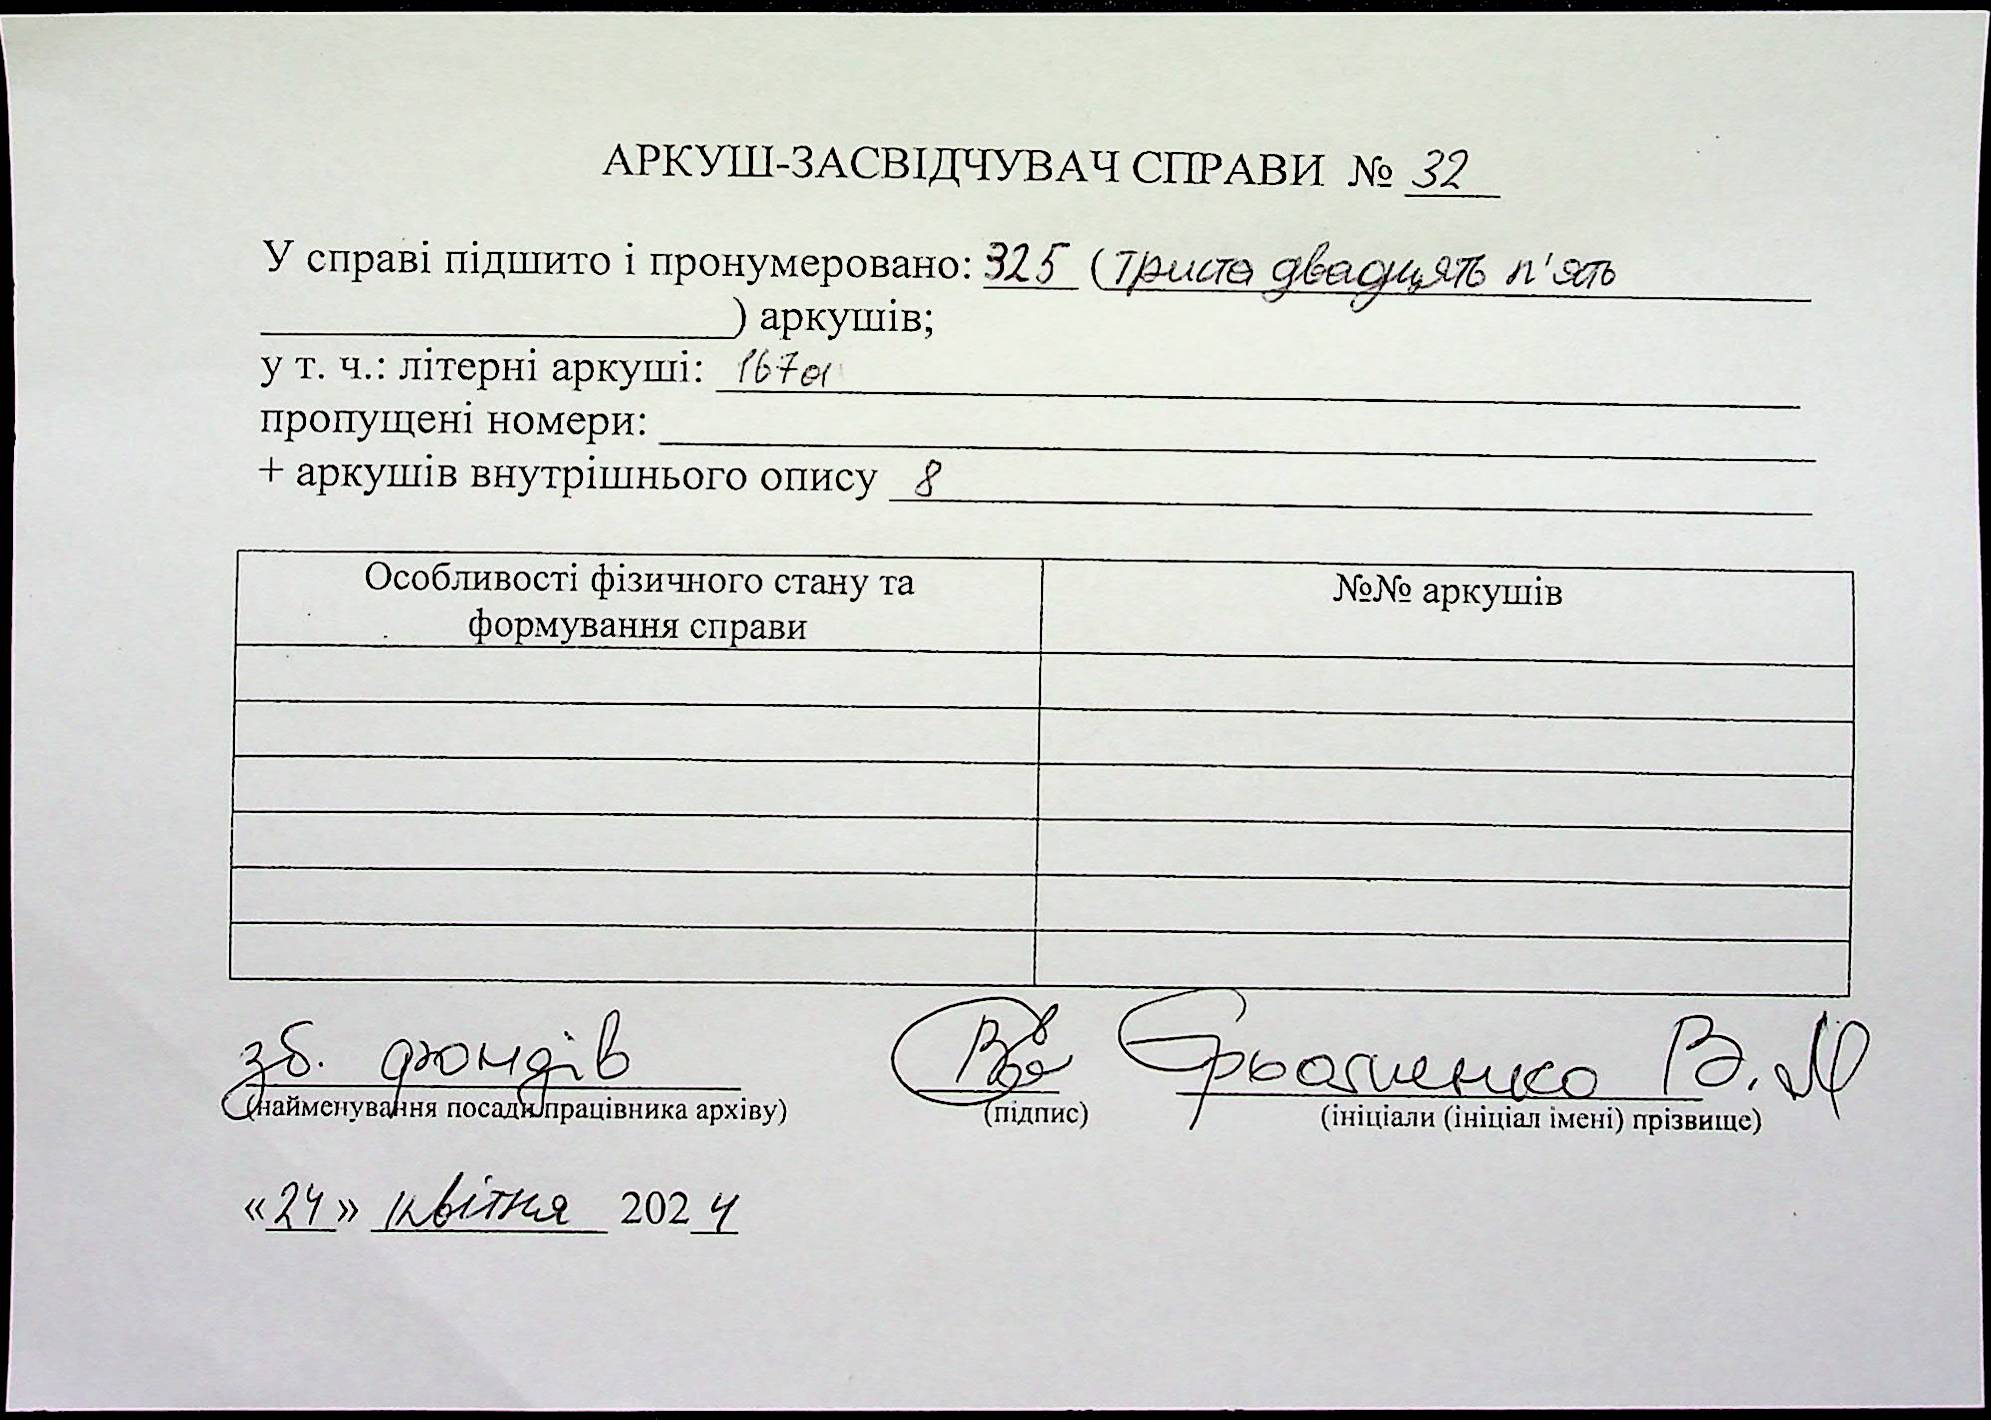 АРКУШ-ЗАСВІДЧУВАЧ СПРАВИ № 32
У справі підшито і пронумеровано: 325 (триста двадцять п'ять
) аркушів;
у т. ч.: літерні аркуші: 167а
пропущені номери:
+ аркушів внутрішнього опису 8
Особливості фізичного стану та
формування справи
№№ аркушів
зб. фондів В. М
(найменування посади працівника архіву) (підпис) (ініціали (ініціал імені) прізвище)
«24» квітня 2024